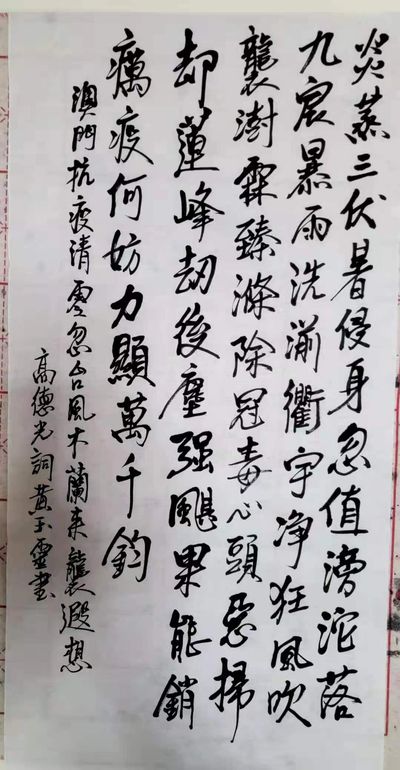 炎蒸三伏暑侵身忽值滂沱落
九宸暴雨洗湔衢宇净狂風吹
襲澍霖臻滌除冠毒心頭惡掃
却蓮峰劫後塵强颶果能銷
癘疫何妨力顯萬千鈞
澳門抗疫清零忽台風木蘭来襲遐想
高德光詞黄玉靈書